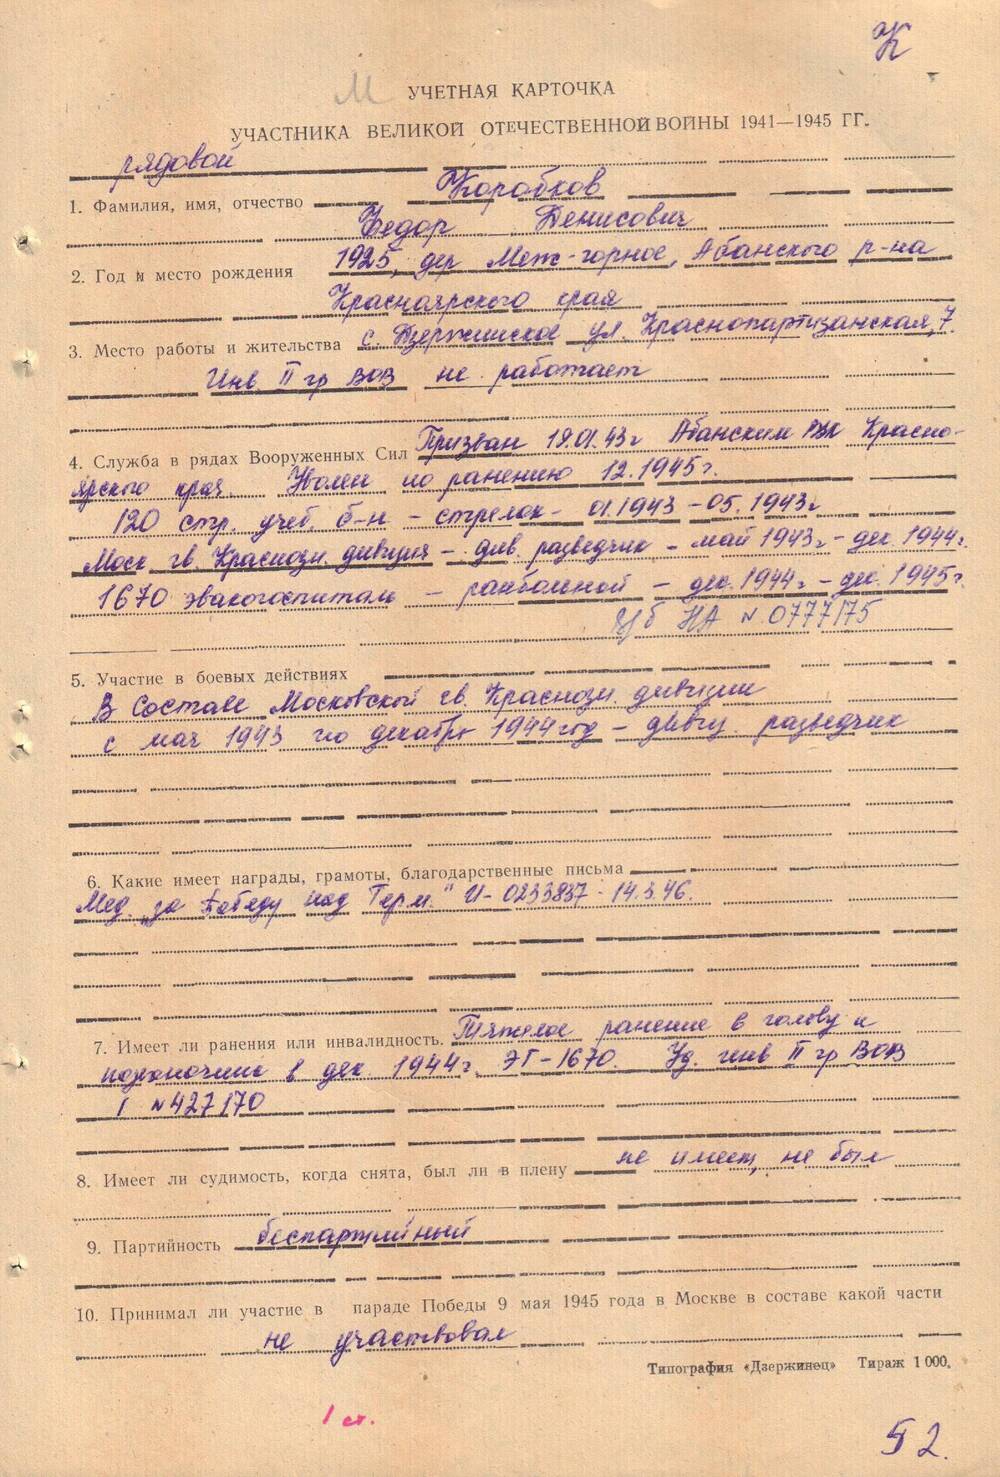 К
М
УЧЕТНАЯ КАРТОЧКА
УЧАСТНИКА ВЕЛИКОЙ ОТЕЧЕСТВЕННОЙ ВОЙНЫ 1941—1945 ГГ.
рядовой
1. Фамилия, имя, отчество Коробков
Федор Денисович
2. Год и место рождения 1925, дер Меж-горное, Абанского р-на
Красноярского края
3. Место работы и жительства с. Дзержинское ул. Краснопартизанская, 7.
Инв. II гр ВОВ не работает
4. Служба в рядах Вооруженных Сил Призван 19.01.43г Абанским РВК Красно-
ярского края. Уволен по ранению 12.1945г.
120 стр. учеб. б-н - стрелок - 01.1943 - 05.1943г
Моск. гв. Краснозн. дивизия - див. разведчик - май 1943г - дек 1944г.
1670 эвакогоспиталь - ранбольной - дек. 1944г - дек. 1945г.
НА N 0777175
5. Участие в боевых действиях
В составе Московской гв. Краснозн. дивизии
с мая 1943 по декабрь 1944 год - дивиз. разведчик
6. Какие имеет награды, грамоты, благодарственные письма
Мед. „за Победу над Герм." И-0233837 - 14.3.46.
7. Имеет ли ранения или инвалидность. Тяжелое ранение в голову и
в дек. 1944г. ЭГ-1670. Уд. инв II гр ВОВ
I N 427170
8. Имеет ли судимость, когда снята, был ли в плену не имеет, не был
9. Партийность беспартийный
10. Принимал ли участие в параде Победы 9 мая 1945 года в Москве в составе какой части
не участвовал
Типография «Дзержинец» Тираж 1 000.
1 ст.
52